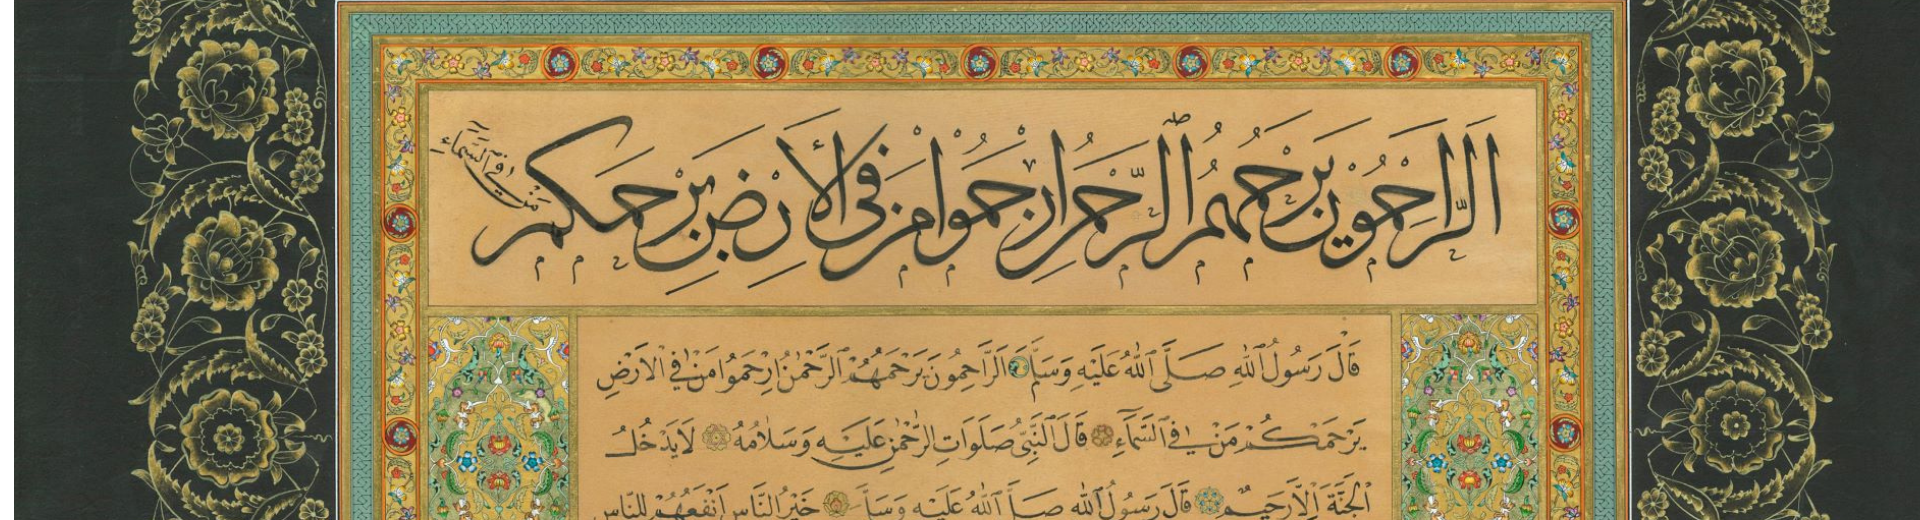 اَلرَّاحِمُونَ يَرْحَمُهُمُ الرَّحْمٰنُ اِرْحَمُوا مَنْ فِي الْأَرْضِ يَرْحَمْكُمْ
مَنْ فِي السَّمَاءِ
قَالَ رَسُولُ اللهِ صَلَّى اللهُ عَلَيْهِ وَسَلَّمَ اَلرَّاحِمُونَ يَرْحَمُهُمُ الرَّحْمٰنُ اِرْحَمُوا مَنْ فِي الْاَرْضِ
يَرْحَمْكُمْ مَنْ فِي السَّمَآءِ قَالَ النَّبِيُّ صَلَوَاتُ الرَّحْمٰنِ عَلَيْهِ وَسَلَامُهُ لَا يَدْخُلُ
الْجَنَّةَ اِلَّا رَحِيمٌ قَالَ رَسُولُ اللهِ صَلَّى اللهُ عَلَيْهِ وَسَلَّمَ خَيْرُ النَّاسِ اَنْفَعُهُمْ لِلنَّاسِ